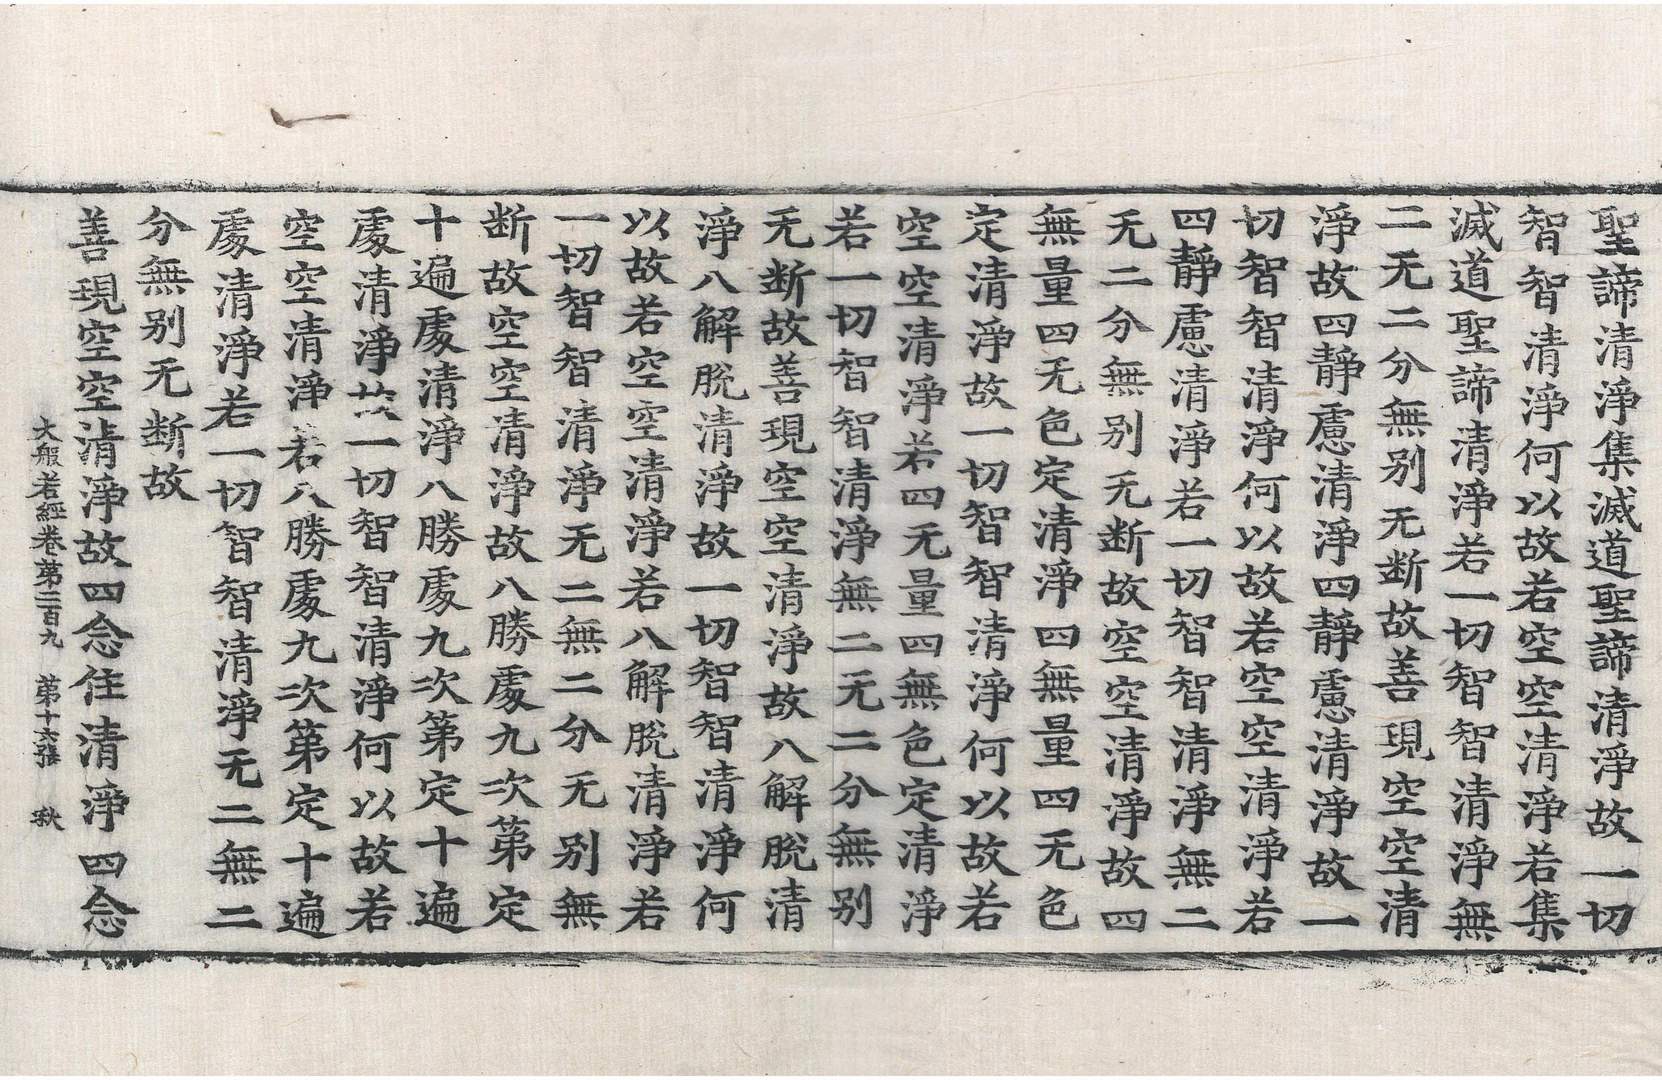 聖諦清淨集滅道聖諦清淨故一切
智智清淨何以故若空空清淨若集
滅道聖諦清淨若一切智智清淨無
二无二分無别无断故善現空空清
淨故四靜慮清淨四靜慮清淨故一
切智智清淨何以故若空空清淨若
四靜慮清淨若一切智智清淨無二
无二分無别无断故空空清淨故四
無量四无色定清淨四無量四无色
定清淨故一切智智清淨何以故若
空空清淨若四无量四無色定清淨
若一切智智清淨無二无二分無别
无断故善現空空清淨故八解脫清
淨八解脫清淨故一切智智清淨何
以故若空空清淨若八解脫清淨若
一切智智清淨无二無二分无别無
断故空空清淨故八勝處九次第定
十遍處清淨八勝處九次第定十遍
處清淨故一切智智清淨何以故若
空空清淨若八勝處九次第定十遍
處清淨若一切智智清淨无二無二
分無别无断故
善現空空清淨故四念住清淨四念
大般若經卷第二百九 第十六張 秋